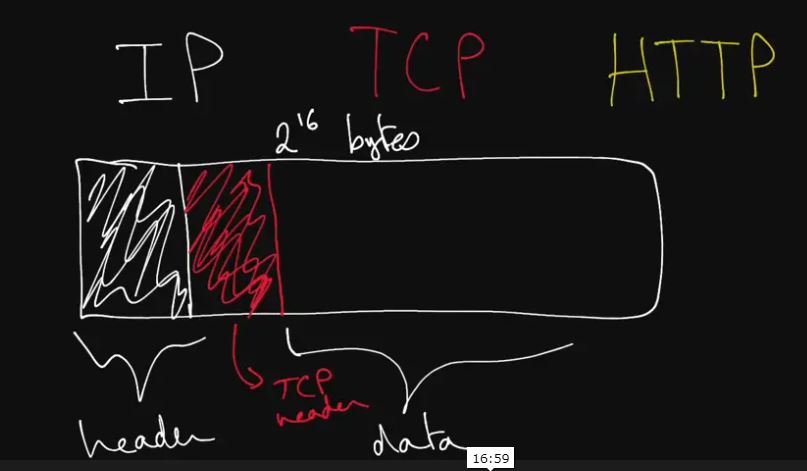 IP TCP HTTP
2^16 bytes
TCP
header
header
data
16:59